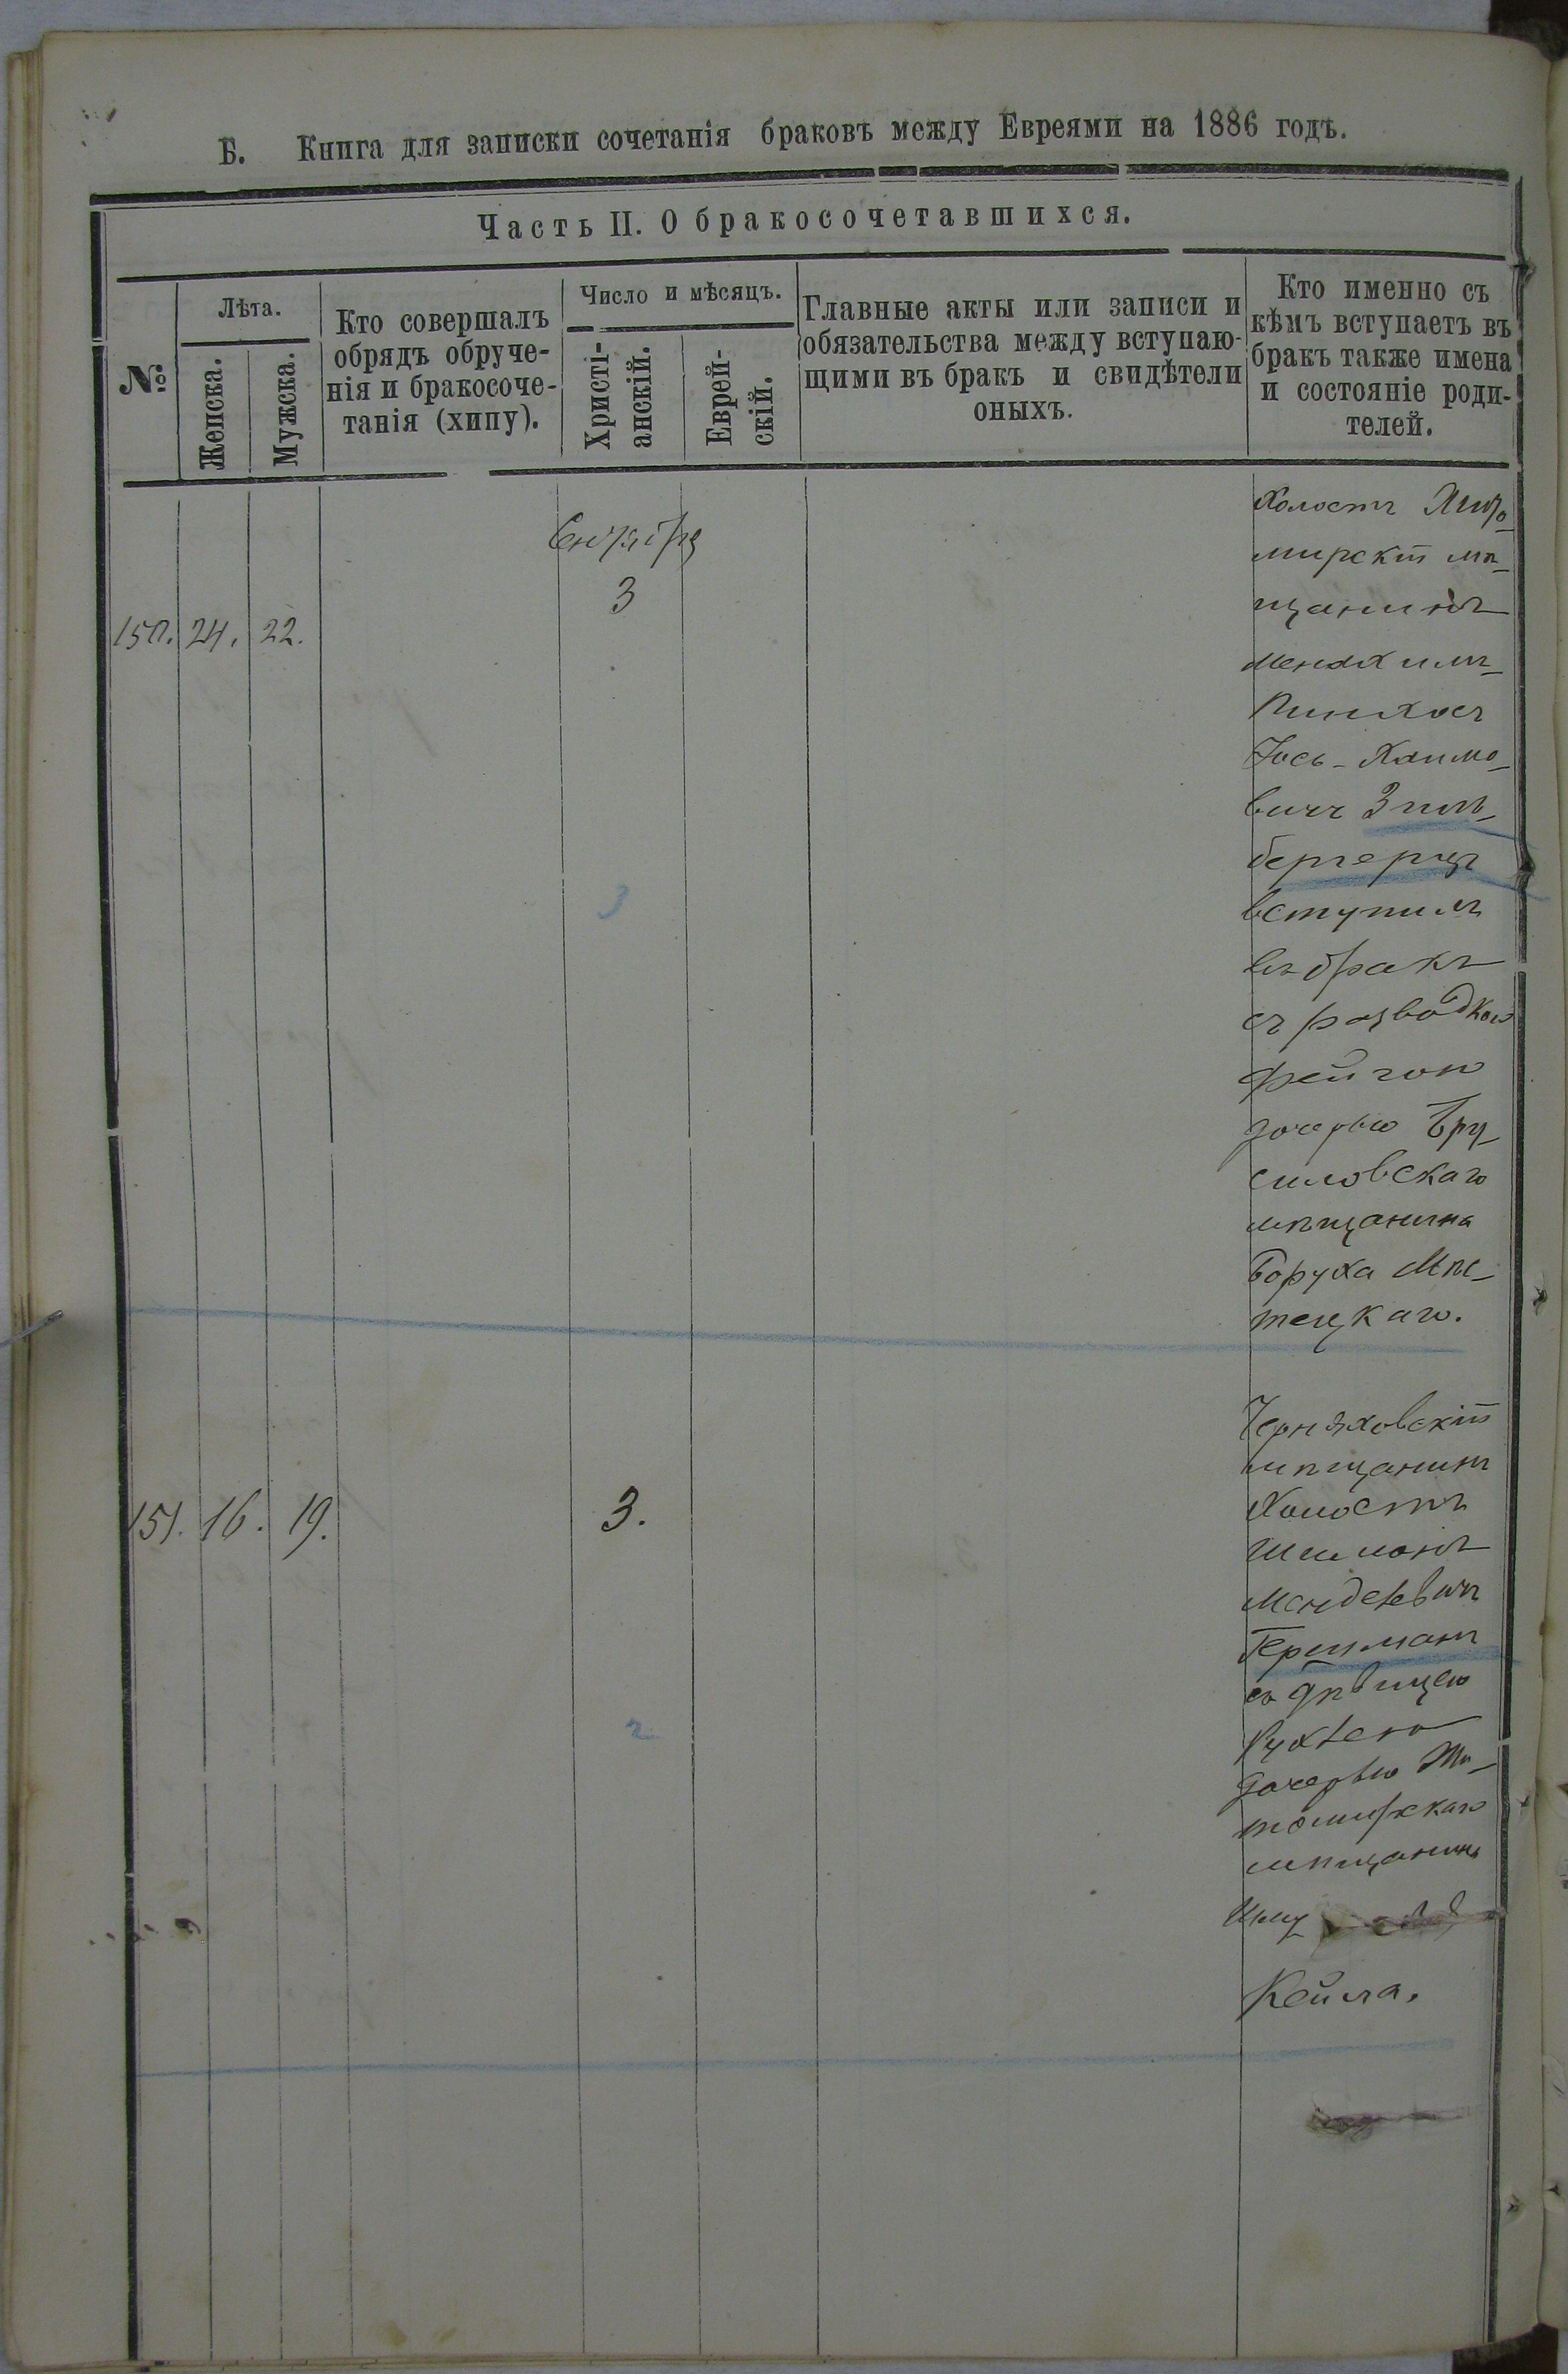 Б. Книга для записки сочетанія браковъ между Евреями на 1886 годъ.
Часть II. О бракосочетавшихся.
№
Лѣта.
Женска.
Мужска.
Кто совершалъ
обрядъ обруче-
нія и бракосоче-
танія (хипу).
Число и мѣсяцъ.
Христі-
анскій.
Еврей-
скій.
Главные акты или записи и
обязательства между вступаю-
щими въ бракъ и свидѣтели
оныхъ.
Кто именно съ
кѣмъ вступаетъ въ
бракъ также имена
и состояніе роди-
телей.
Сентября
3
150. 24. 22.
Холостъ Жито-
мирскій мѣ-
щанинъ
Менахимъ-
Пинхосъ
Іось-Хаимо-
вичъ Зиль-
бергерцъ
вступилъ
въ бракъ
съ разводкою
Фейгою
дочерью Бру-
силовскаго
мѣщанина
Боруха
3
151. 16. 19.
3.
Черняховскій
мѣщанинъ
Холостъ
Шимонъ
Менделевичъ
Герцманъ
съ дѣвицею
Рухлею
дочерью Жи-
томирскаго
мѣщанина
Кейла.
2